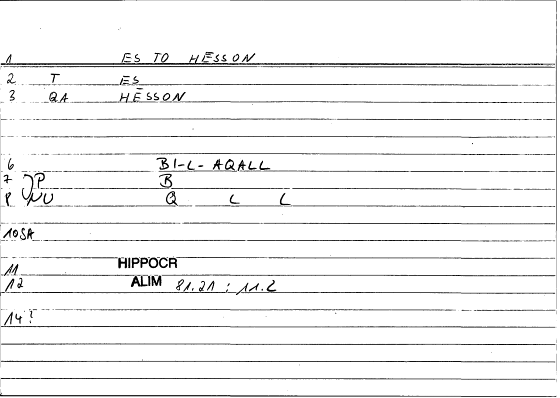 1 ES TO HĒSSON
2 T ES
3 QA HĒSSON
6 BI-L-AQALL
7 P B
8 NU Q L L
10 SA
11 HIPPOCR
12 ALIM 81.21 : 11.2
14 ?